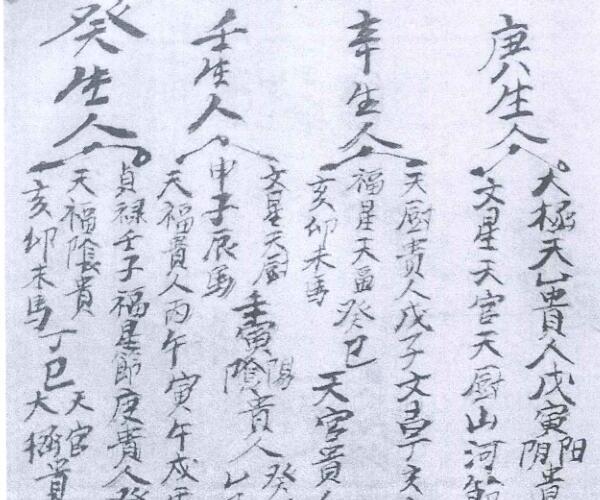 庚生人
大極天乙貴人戊寅阳
阴貴
文星天官天厨山河
辛生人
天厨貴人戊子文
福星天畐癸巳
亥卯未馬
天官貴人
壬生人
文星天厨
申子辰馬
壬寅陽
陰貴人
天福貴人丙午寅午戌
癸生人
貞禄壬子福星節庚貴人
天福陰貴
亥卯未馬
丁巳
天官
大極貴